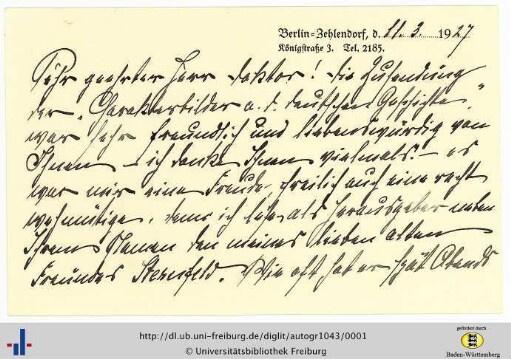 Berlin-Zehlendorf, d. 11. 3. 1927
Königstraße 3. Tel. 2185.
Sehr geehrter Herr Doktor! Die Zusendung
der „Charakterbilder a. d. deutschen Geschichte“
war sehr freundlich und liebenswürdig von
Ihnen – ich danke Ihnen vielmals. – es
war mir eine Freude, freilich auch eine recht
wehmütige, denn ich sehe als Herausgeber neben
Ihrem Namen den meines lieben alten
Freundes Sternfeld. Wie oft hat er spät Abends
http://dl.ub.uni-freiburg.de/diglit/autogr1043/0001
© Universitätsbibliothek Freiburg
gefördert durch
Baden-Württemberg